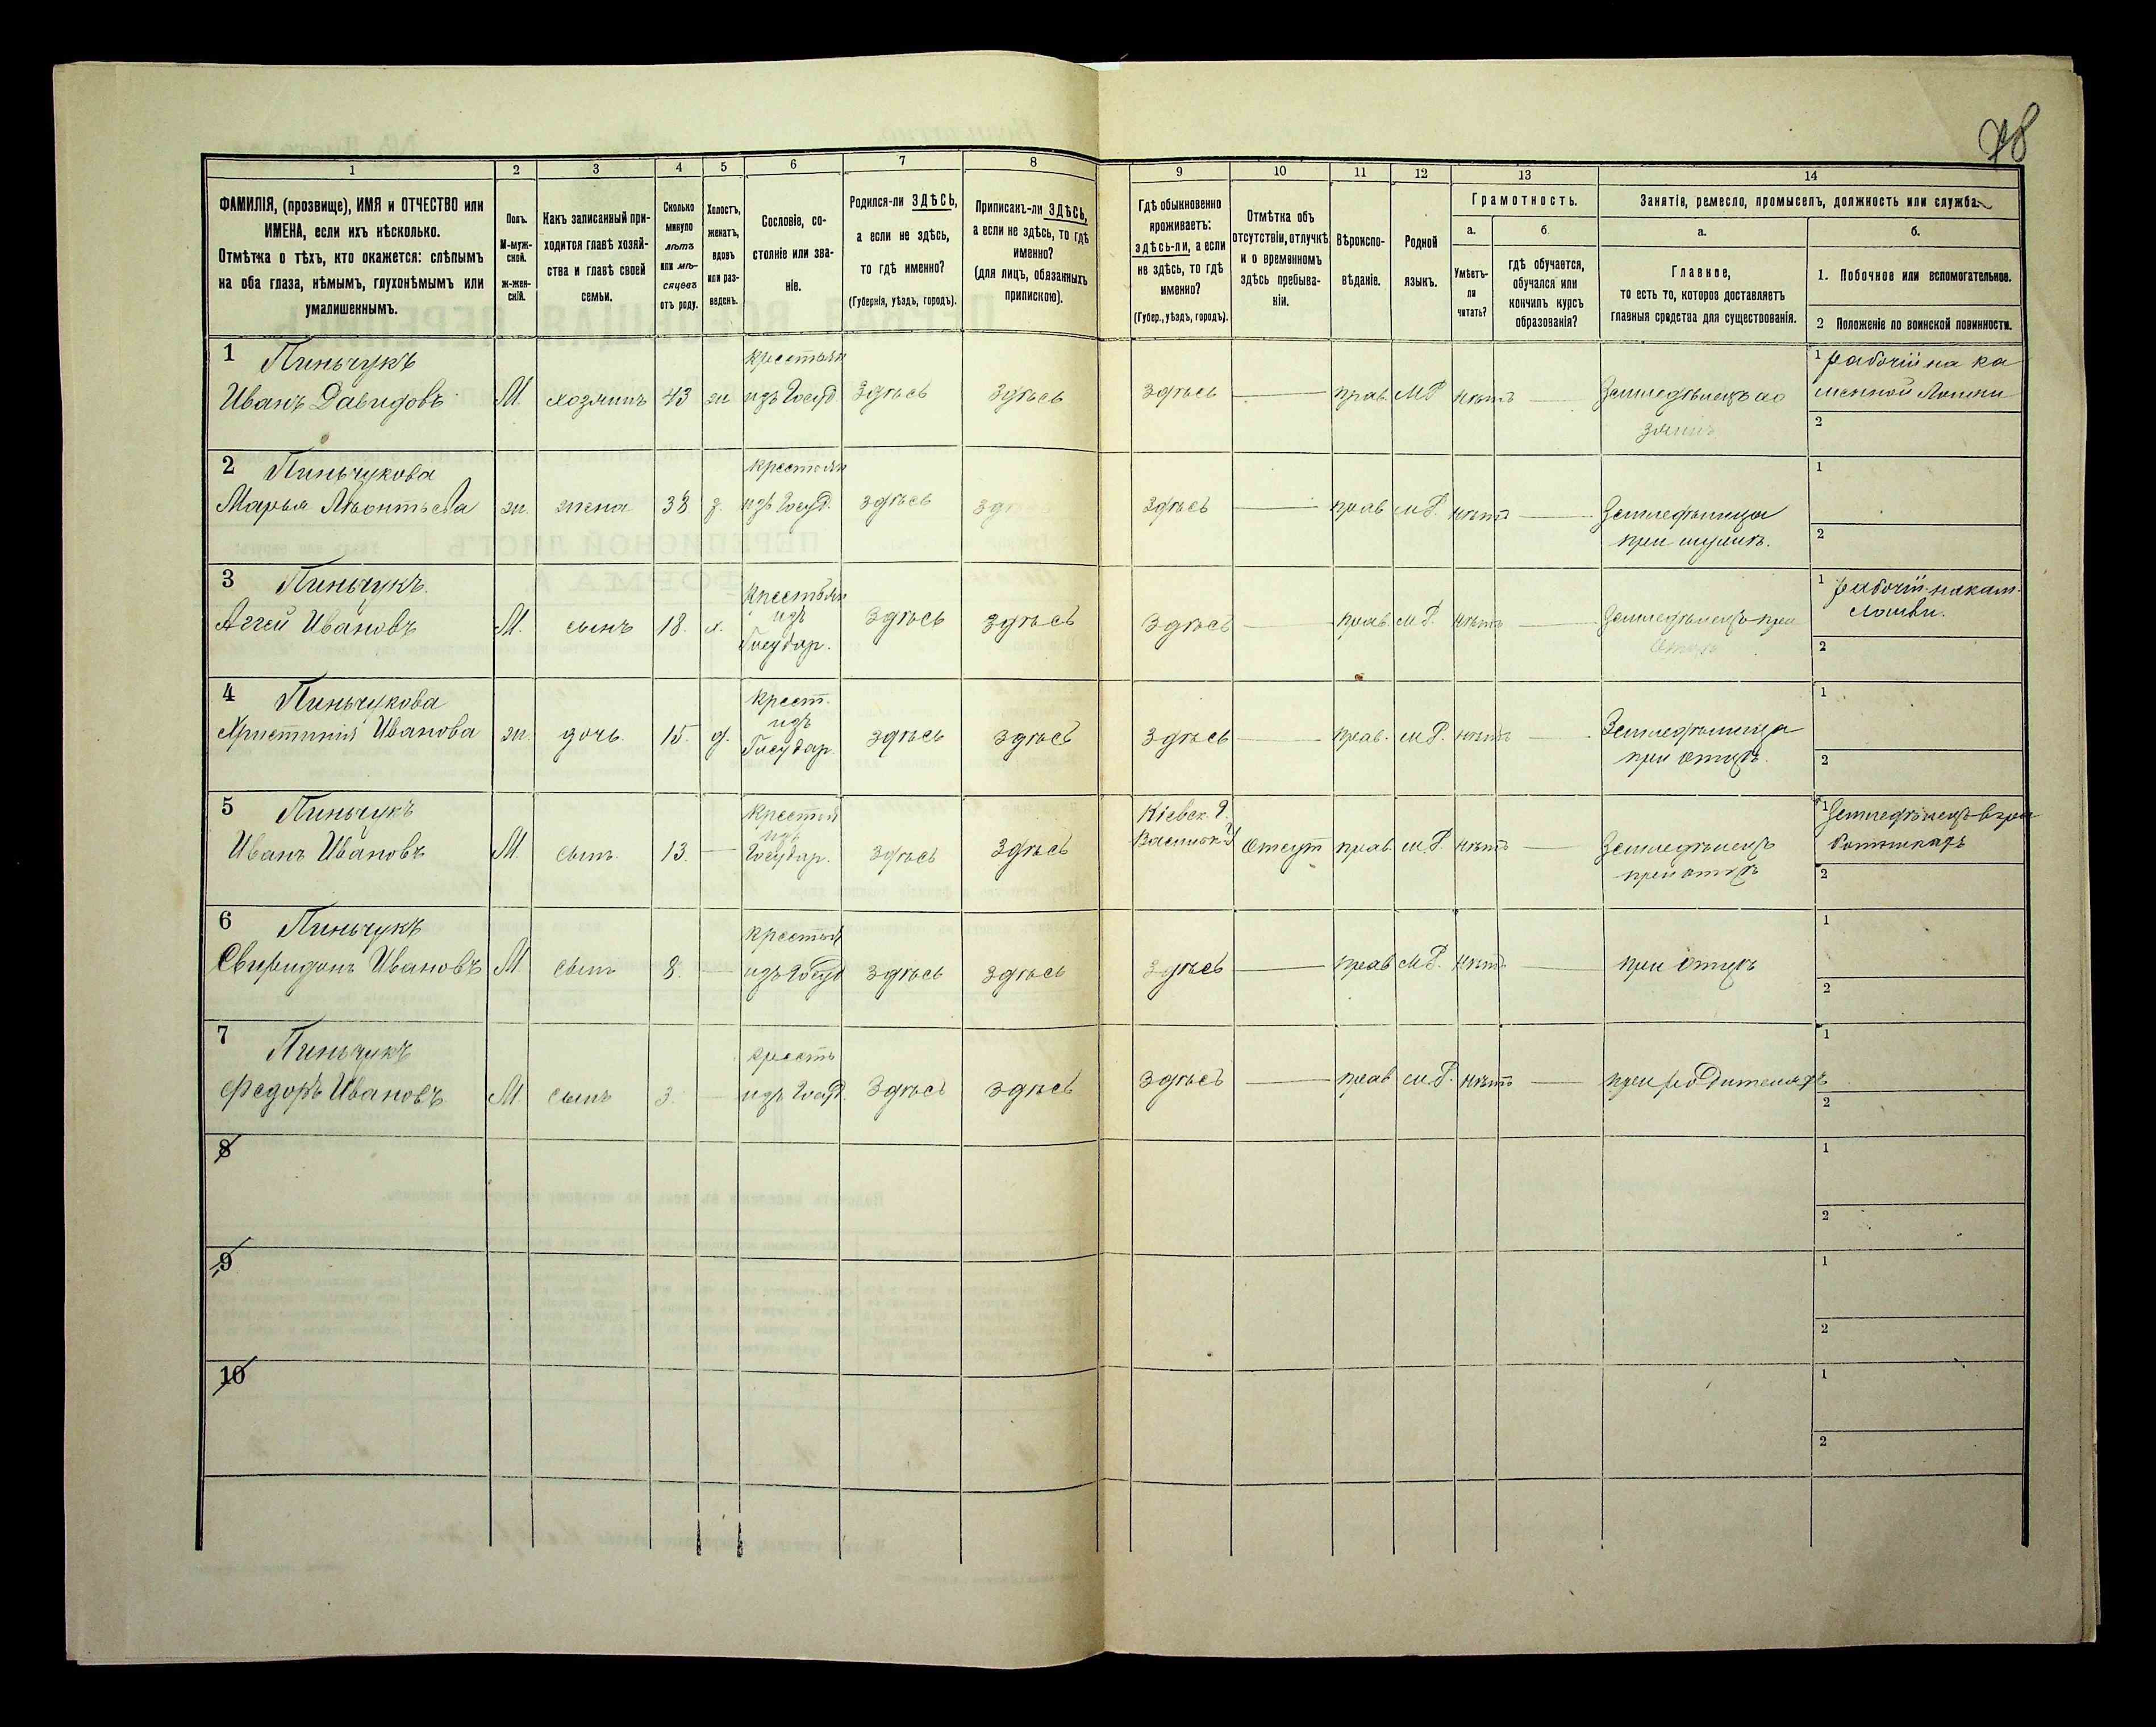 78
1 2 3 4 5 6 7 8 9 10 11 12 13 14
ФАМИЛІЯ, (прозвище), ИМЯ и ОТЧЕСТВО или
ИМЕНА, если ихъ нѣсколько.
Отмѣтка о тѣхъ, кто окажется: слѣпымъ
на оба глаза, нѣмымъ, глухонѣмымъ или
умалишеннымъ.
Полъ.
М-муж-
ской.
ж-жен-
скій.
Какъ записанный при-
ходится главѣ хозяй-
ства и главѣ своей
семьи.
Сколько
минуло
лѣтъ
или мѣ-
сяцевъ
отъ роду.
Холостъ,
женатъ,
вдовъ
или раз-
веденъ.
Сословіе, со-
стояніе или зва-
ніе.
Родился-ли ЗДѢСЬ,
а если не здѣсь,
то гдѣ именно?
(Губернія, уѣздъ, городъ).
Приписанъ-ли ЗДѢСЬ,
а если не здѣсь, то гдѣ
именно?
(для лицъ, обязанныхъ
припискою).
Гдѣ обыкновенно
проживаетъ:
здѣсь-ли, а если
не здѣсь, то гдѣ
именно?
(Губер., уѣздъ, городъ).
Отмѣтка объ
отсутствіи, отлучкѣ
и о временномъ
здѣсь пребыва-
ніи.
Вѣроиспо-
вѣданіе.
Родной
языкъ.
Грамотность.
а.
Умѣетъ-
ли
читать?
б.
гдѣ обучается,
обучался или
кончилъ курсъ
образованія?
Занятія, ремесло, промыселъ, должность или служба.
а.
Главное,
то есть то, которое доставляетъ
главныя средства для существованія.
б.
1. Побочное или вспомогательное.
2 Положеніе по воинской повинности.
1 Пиньчукъ крестьян 1 рабочій на ка
Иванъ Давидовъ М. хозяинъ 43 ж изъ Госуд здѣсь здѣсь здѣсь прав. М.Р. нѣтъ Земледѣлецъ
2
2 Пиньчукова крестьян 1
Марья Леонтьева ж. жена 38 з. изъ Госуд. здѣсь здѣсь прав м.Р. нѣтъ Земледѣлица
при мужѣ. 2
3 Пиньчукъ. крестьян 1 рабочій на кам.
Аггей Ивановъ М. сынъ 18. х. изъ здѣсь здѣсь здѣсь прав. м.Р. нѣтъ Земледѣлецъ при
Государ. 2
4 Пиньчукова крест. 1
Христинія Иванова ж. дочь 15. д. изъ здѣсь здѣсь здѣсь прав. м.Р. нѣтъ Земледѣлица
Государ. при отцѣ. 2
5 Пиньчукъ крестья Кіевск. Г. 1 Земледѣлецъ
Иванъ Ивановъ М. сынъ 13. изъ здѣсь здѣсь Отсут прав. м.Р. нѣтъ Земледѣлецъ
Государ. при отцѣ 2
6 Пиньчукъ крестья 1
Свиридонъ Ивановъ М сынъ 8. изъ Госуд здѣсь здѣсь здѣсь прав м.Р. нѣтъ при отцѣ
2
7 Пиньчукъ крест 1
Федоръ Ивановъ М. сынъ 3. изъ Госуд. здѣсь здѣсь здѣсь прав м.Р. нѣтъ при родителяхъ
2
8 1
2
9 1
2
10 1
2